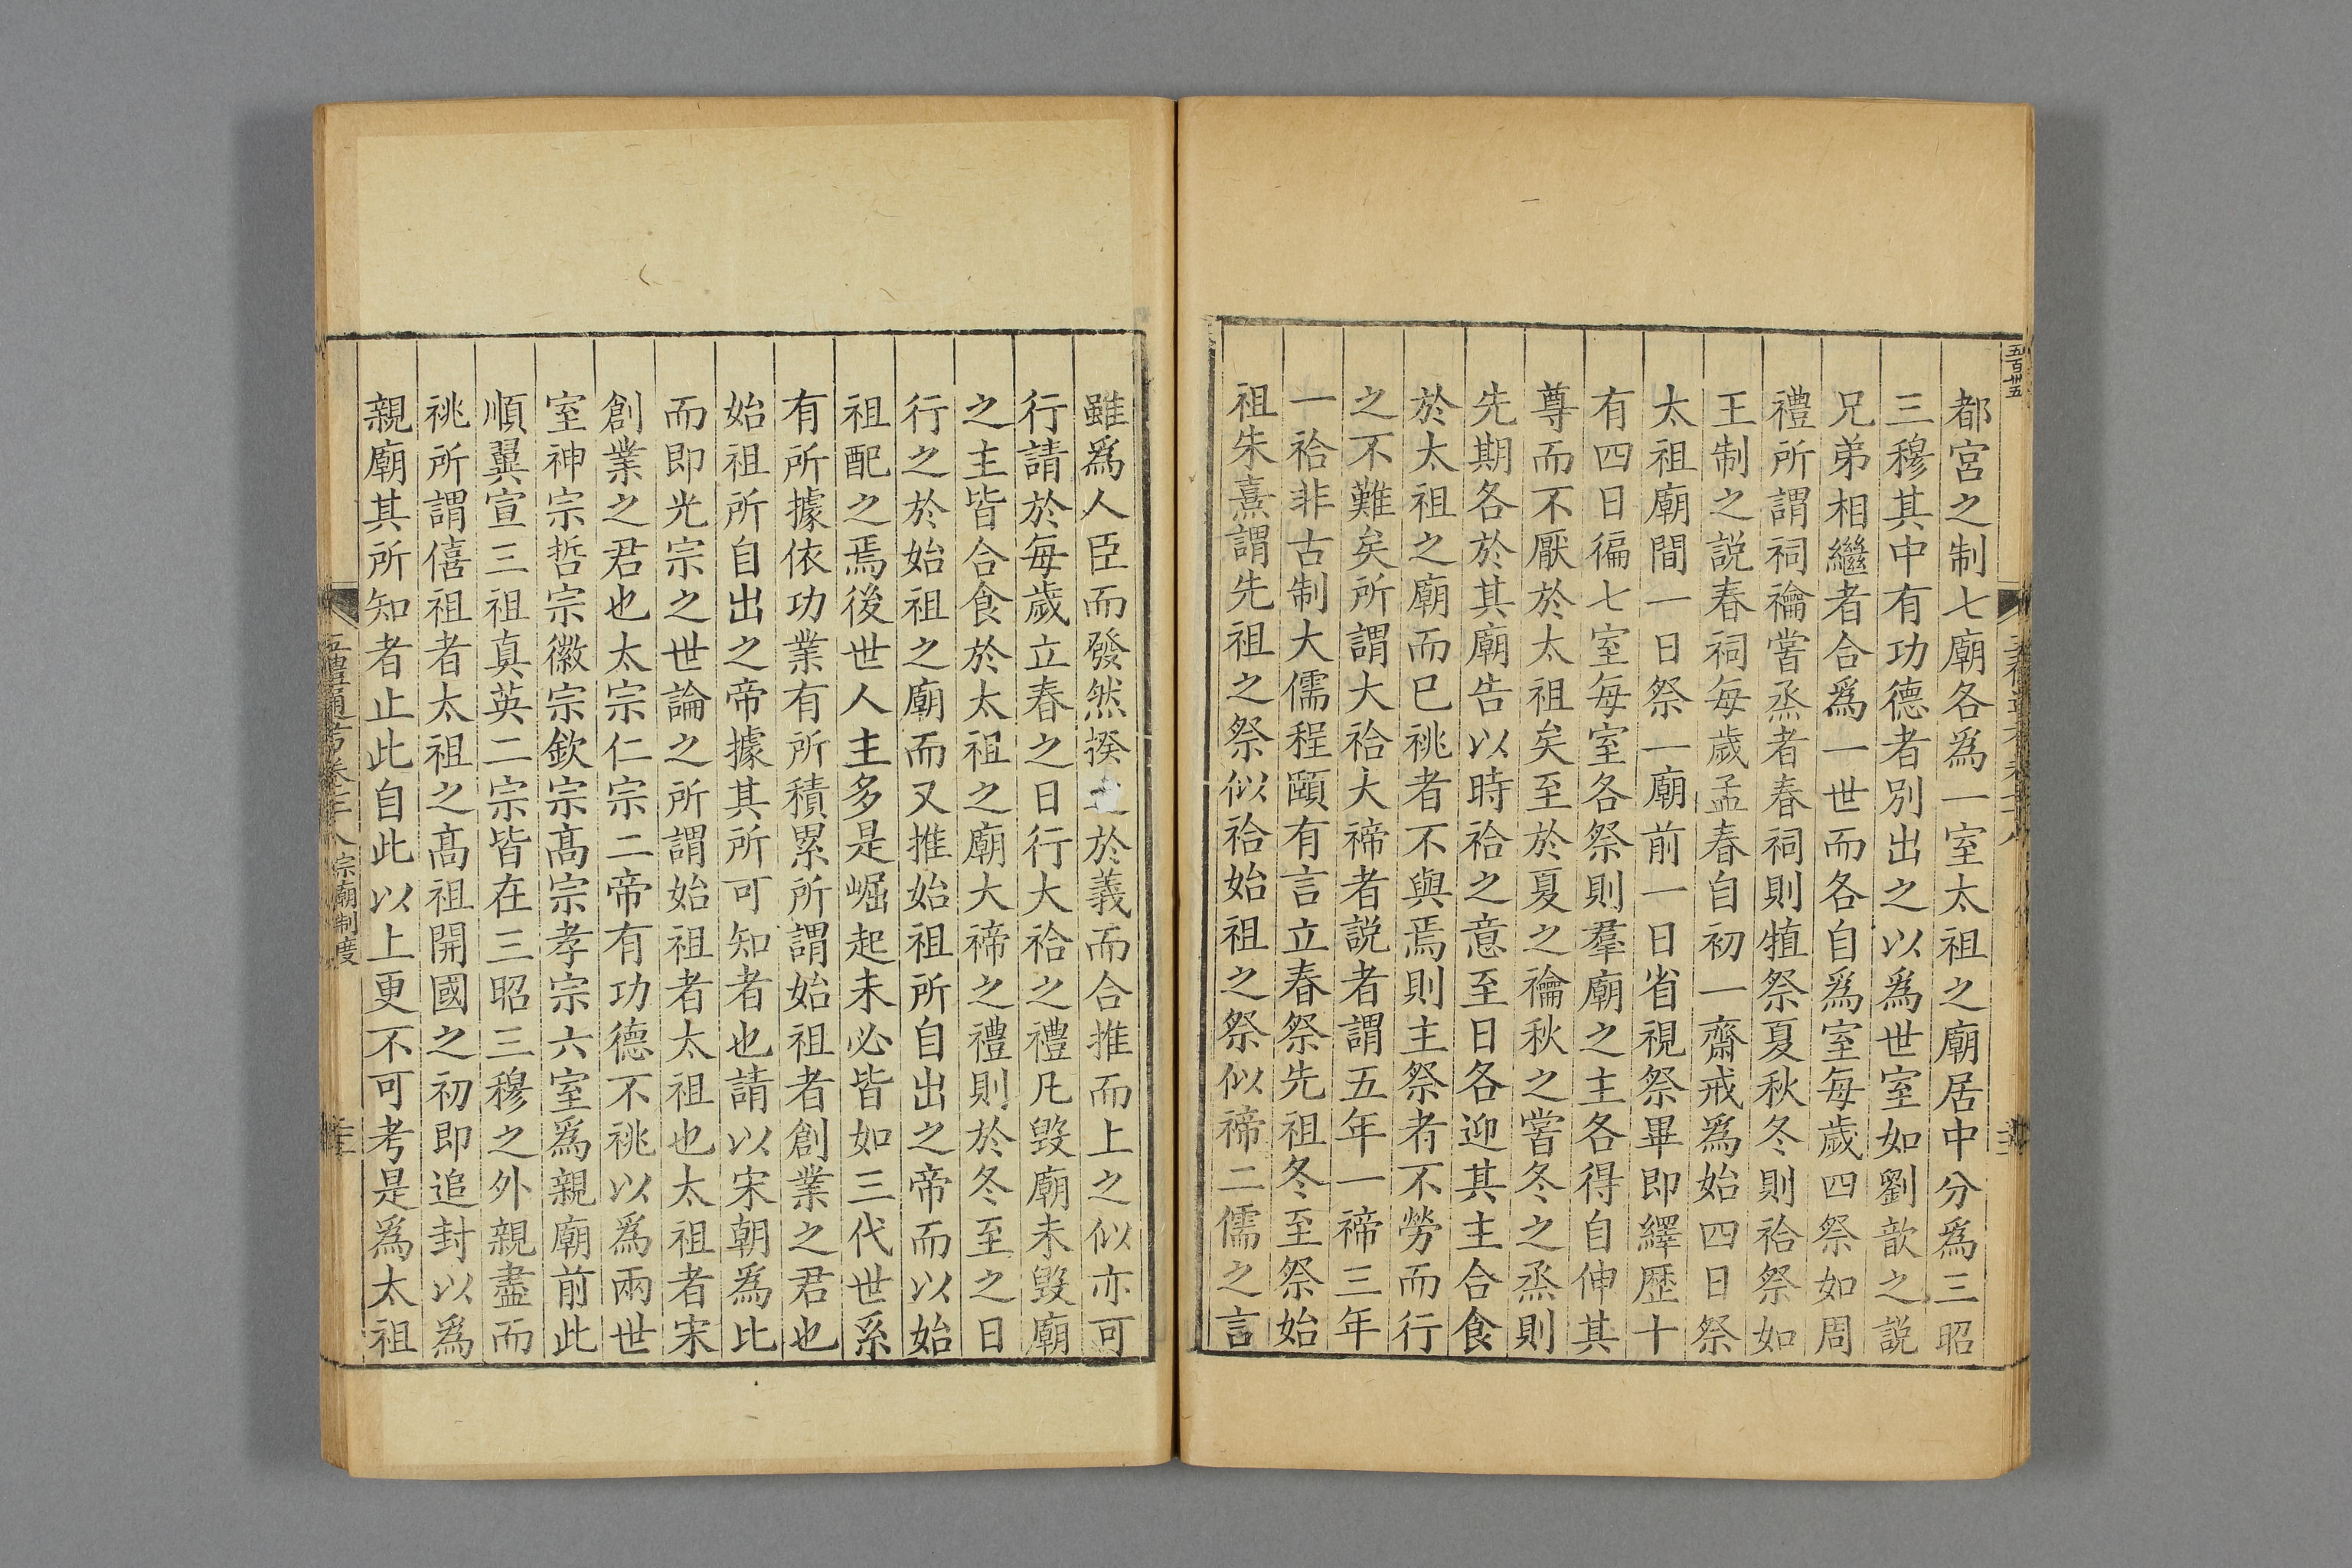 五百卅五
都宮之制七廟各爲一室太祖之廟居中分爲三昭
三穆其中有功德者別出之以爲世室如劉歆之説
兄弟相繼者合爲一世而各自爲室每歲四祭如周
禮所謂祠禴嘗烝者春祠則犆祭夏秋冬則祫祭如
王制之説春祠每歲孟春自初一齋戒爲始四日祭
太祖廟間一日祭一廟前一日省視祭畢即繹歷十
有四日徧七室每室各祭則羣廟之主各得自伸其
尊而不厭於太祖矣至於夏之禴秋之嘗冬之烝則
先期各於其廟告以時祫之意至日各迎其主合食
於太祖之廟而已祧者不與焉則主祭者不勞而行
之不難矣所謂大祫大禘者説者謂五年一禘三年
一祫非古制大儒程頤有言立春祭先祖冬至祭始
祖朱熹謂先祖之祭似祫始祖之祭似禘二儒之言
雖爲人臣而發然揆於義而合推而上之似亦可
行請於每歲立春之日行大祫之禮凡毀廟未毀廟
之主皆合食於太祖之廟大禘之禮則於冬至之日
行之於始祖之廟而又推始祖所自出之帝而以始
祖配之焉後世人主多是崛起未必皆如三代世系
有所據依功業有所積累所謂始祖者創業之君也
始祖所自出之帝據其所可知者也請以宋朝爲比
而即光宗之世論之所謂始祖者太祖也太祖者宋
創業之君也太宗仁宗二帝有功德不祧以爲兩世
室神宗哲宗徽宗欽宗高宗孝宗六室爲親廟前此
順翼宣三祖真英二宗皆在三昭三穆之外親盡而
祧所謂僖祖者太祖之高祖開國之初即追封以爲
親廟其所知者止此自此以上更不可考是爲太祖
五禮通考卷五十八 宗廟制度